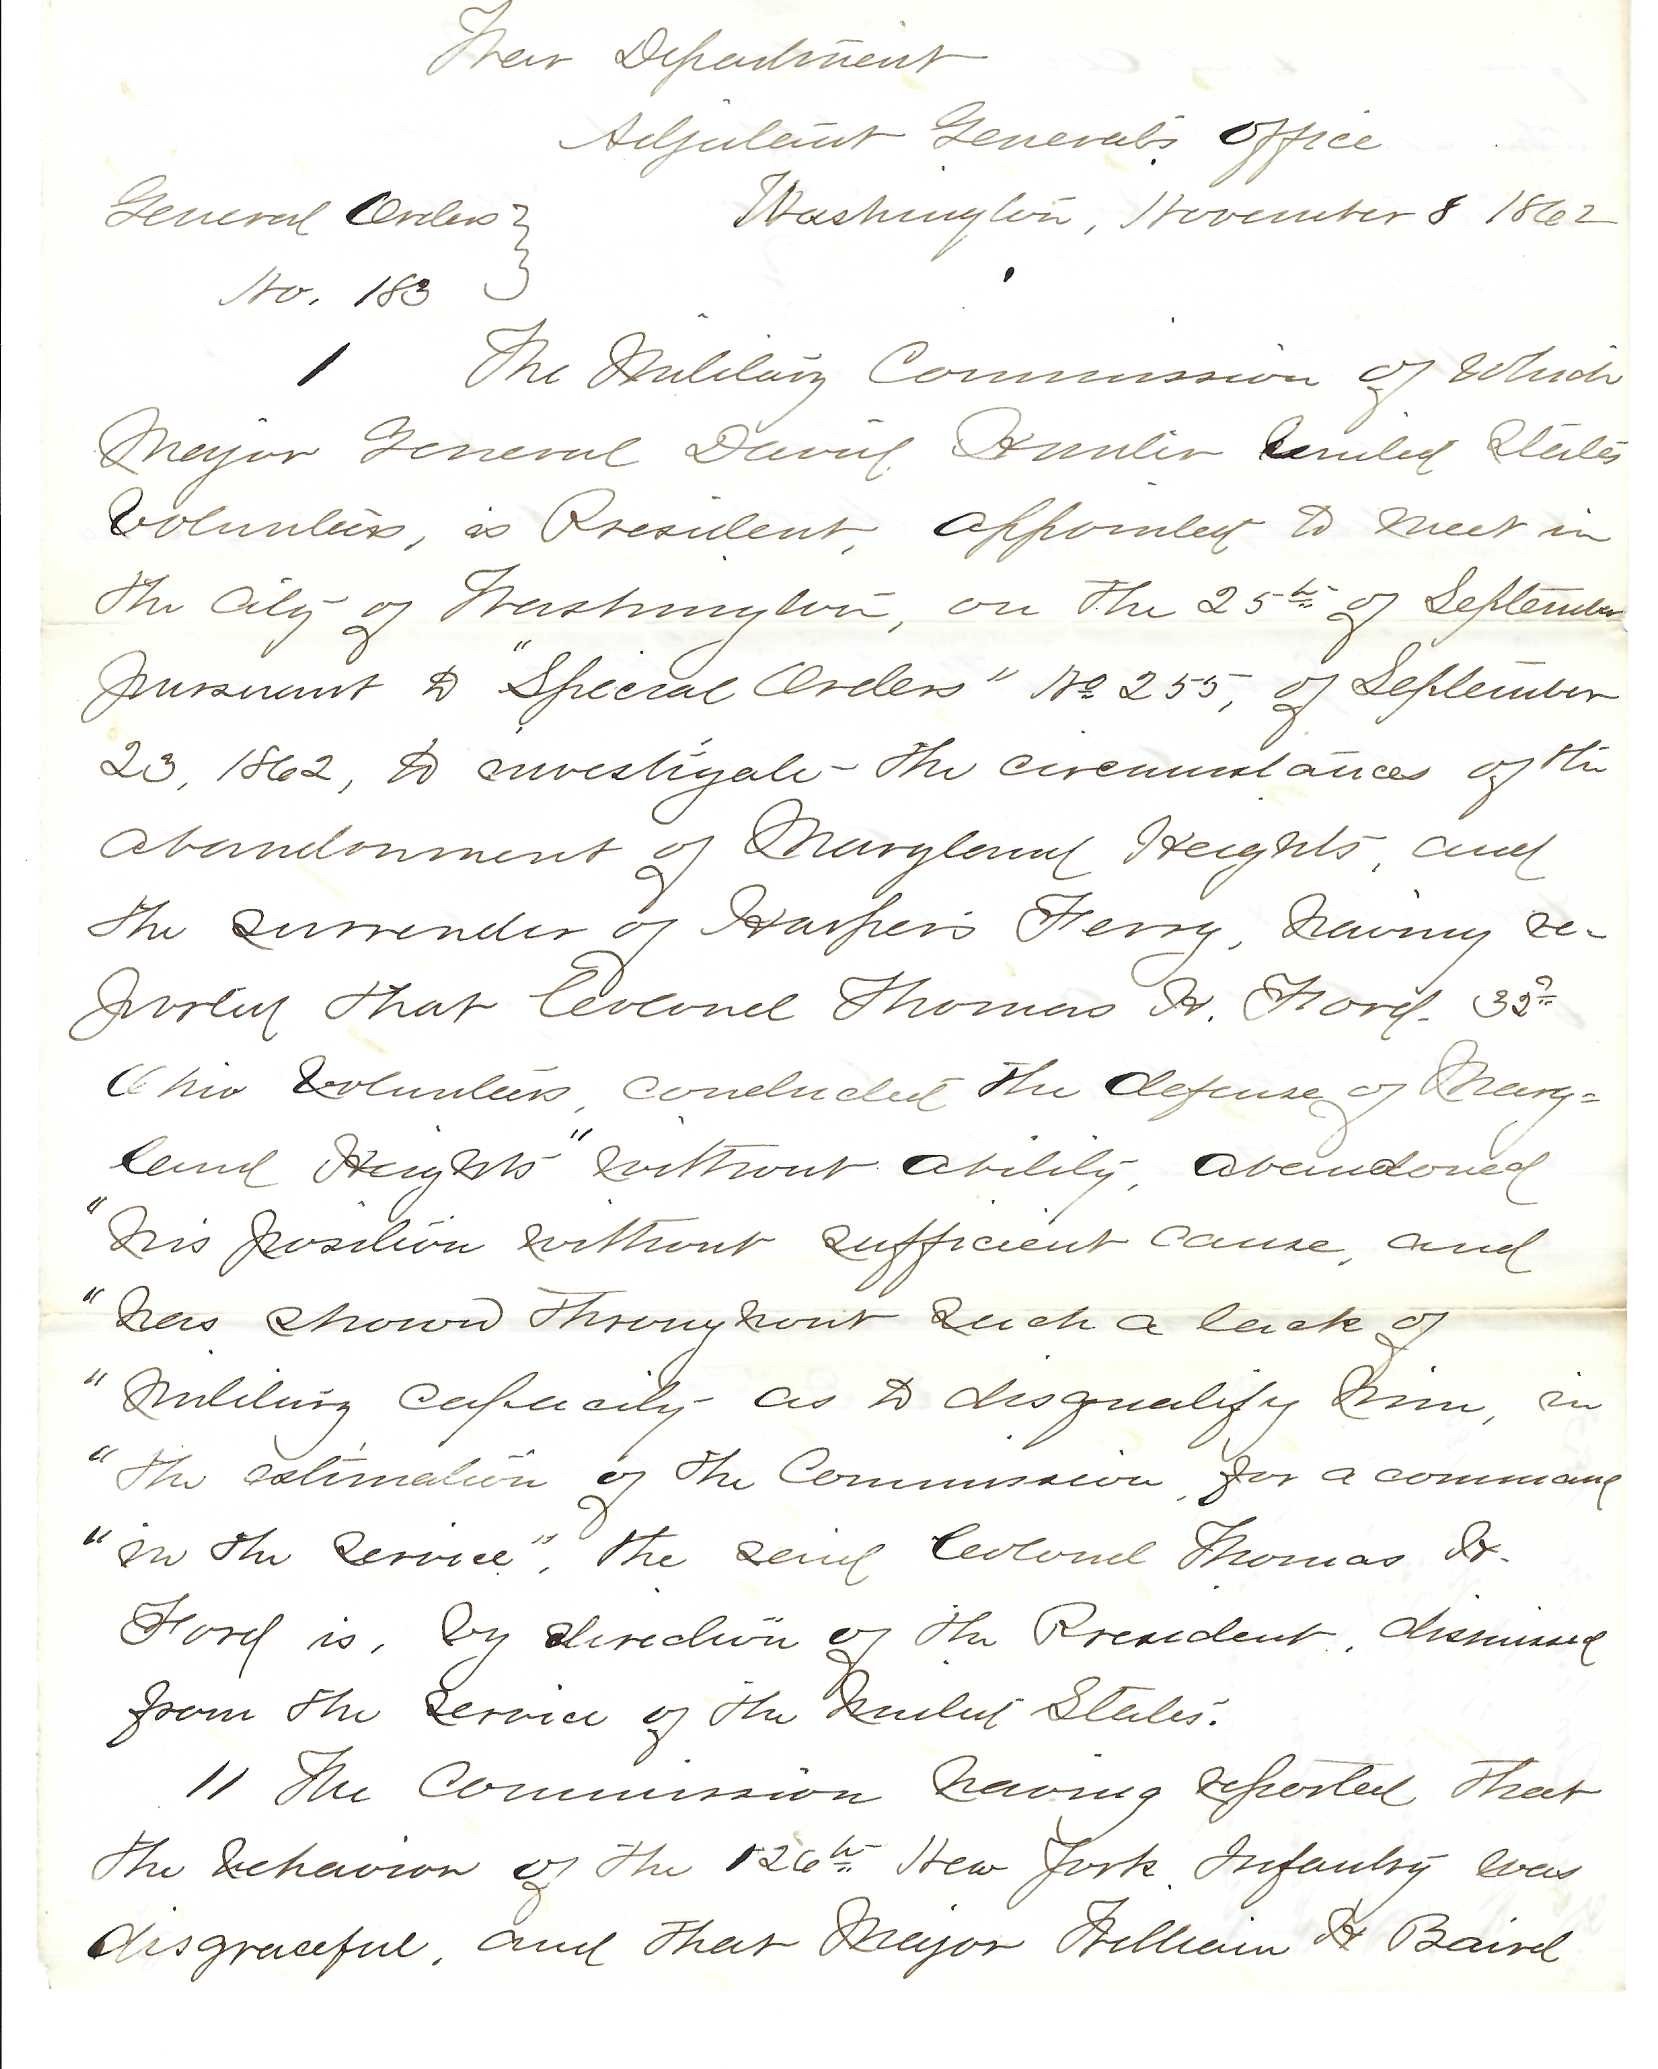 War Department
Adjutant General's Office
General Orders } Washington, November 8 1862
No. 183
1 The Military Commission of which
Major General David Hunter United States
Volunteers, is President, appointed to meet in
the City of Washington, on the 25th of September
pursuant to "Special Orders" No 255, of September
23, 1862, to investigate the circumstances of the
abandonment of Maryland Heights, and
the surrender of Harper's Ferry, having re-
ported that Colonel Thomas H. Ford. 32d
Ohio Volunteers, conducted the defense of Mary=
land Heights "without ability, abandoned
"his position without sufficient cause, and
"has shown throughout such a lack of
"military capacity as to disqualify him, in
"the estimation of the Commission, for a command
"in the service", the said Colonel Thomas H.
Ford is, by direction of the President, dismissed
from the service of the United States.
11 The Commission having reported that
the behavior of the 126th New York Infantry was
disgraceful, and that Major William H Baird